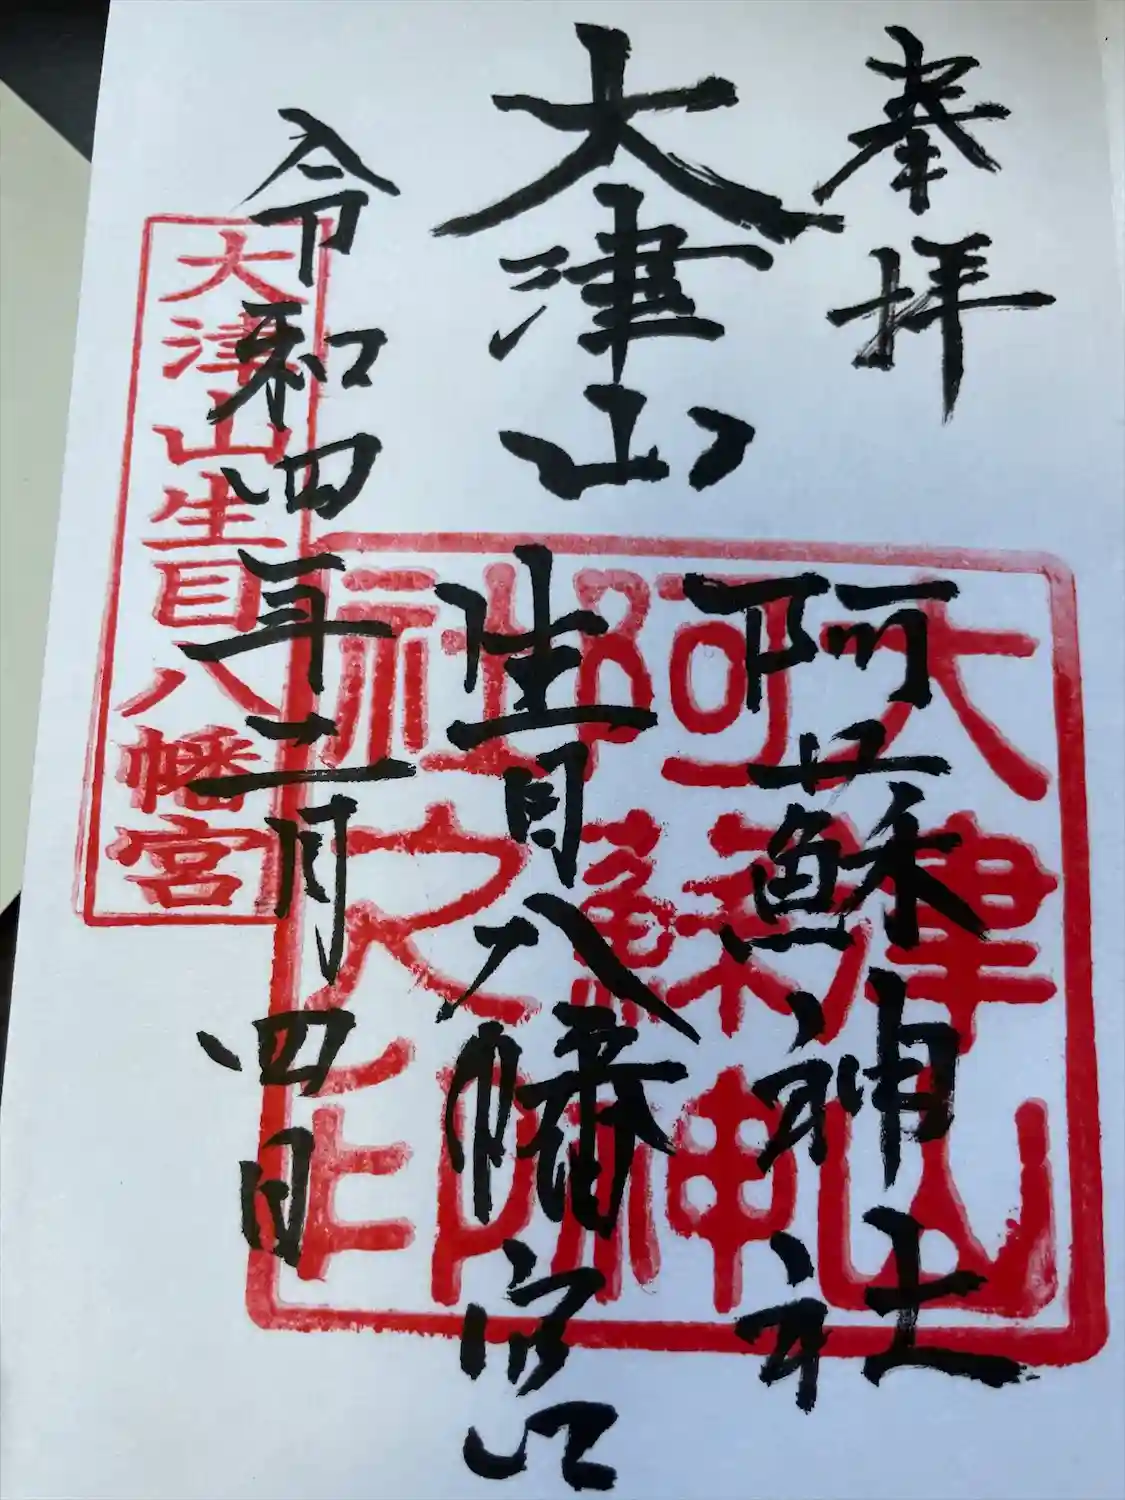 奉拝
大津山
阿蘇神社
生目八幡宮
令和四年二月四日
大津山
阿蘇神
社之印
大津山生目八幡宮